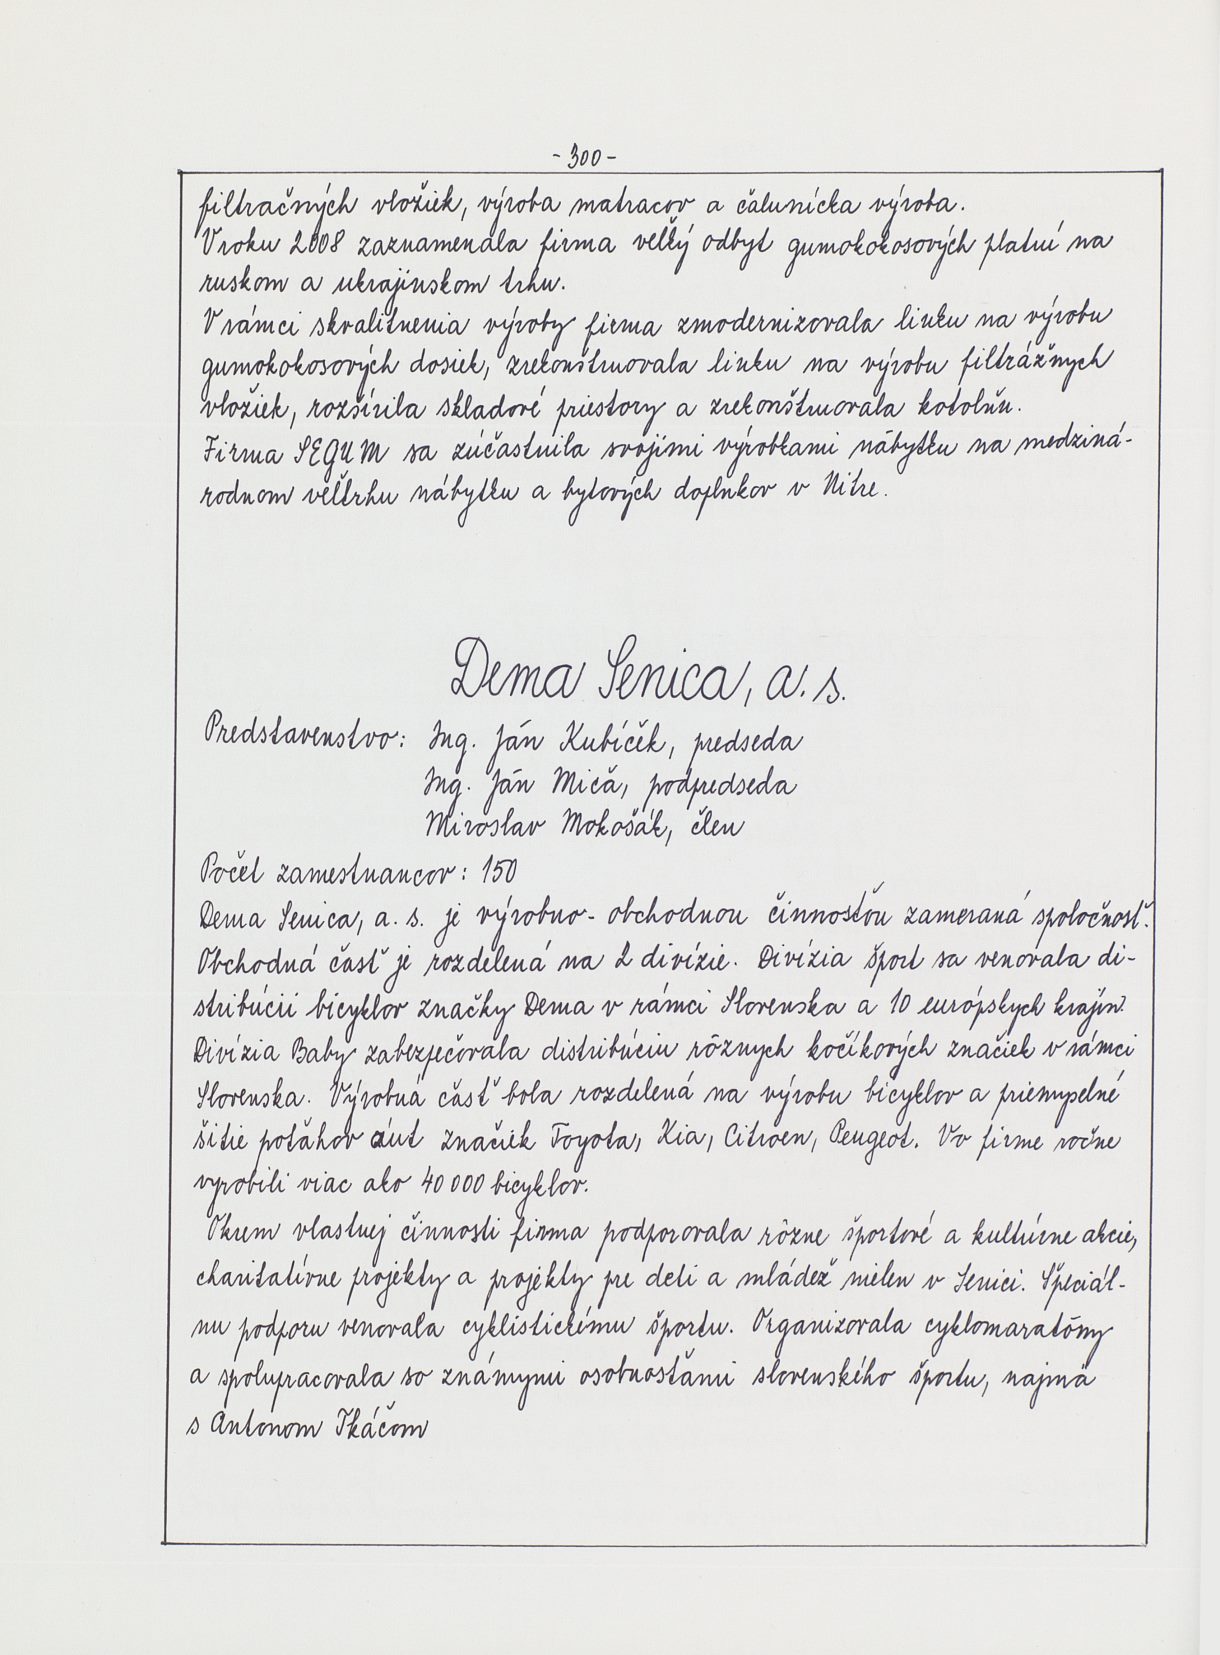 - 300 -
filtračných vložiek, výroba matracov a čalunícka výroba.
V roku 2008 zaznamenala firma veľký odbyt gumokokosových platní na
ruskom a ukrajinskom trhu.
V rámci skvalitnenia výroby firma zmodernizovala linku na výrobu
gumokokosových dosiek, zrekonštruovala linku na výrobu filtrážnych
vložiek, rozšírila skladové priestory a zrekonštruovala kotolňu.
Firma SEGUM sa zúčastnila svojimi výrobkami nábytku na medziná-
rodnom veľtrhu nábytku a bytových doplnkov v Nitre.
Dema Senica, a. s.
Predstavenstvo: Ing. Ján Kubíček, predseda
Ing. Ján Mičă, podpredseda
Miroslav Mokošák, člen
Počet zamestnancov: 150
Dema Senica, a. s. je výrobno-obchodnou činnosťou zameraná spoločnosť.
Obchodná časť je rozdelená na 2 divízie. Divízia šport sa venovala di-
stribúcii bicyklov značky Dema v rámci Slovenska a 10 európskych krajín.
Divízia Baby zabezpečovala distribúciu rôznych kočíkových značiek v rámci
Slovenska. Výrobná časť bola rozdelená na výrobu bicyklov a priemyselné
šitie poťahov áut značiek Toyota, Kia, Citroen, Peugeot. Vo firme ročne
vyrobili viac ako 40 000 bicyklov.
Okrem vlastnej činnosti firma podporovala rôzne športové a kultúrne akcie,
charitatívne projekty a projekty pre deti a mládež nielen v Senici. Špeciál-
nu podporu venovala cyklistickému športu. Organizovala cyklomaratóny
a spolupracovala so známymi osobnosťami slovenského športu, najmä
s Antonom Tkáčom